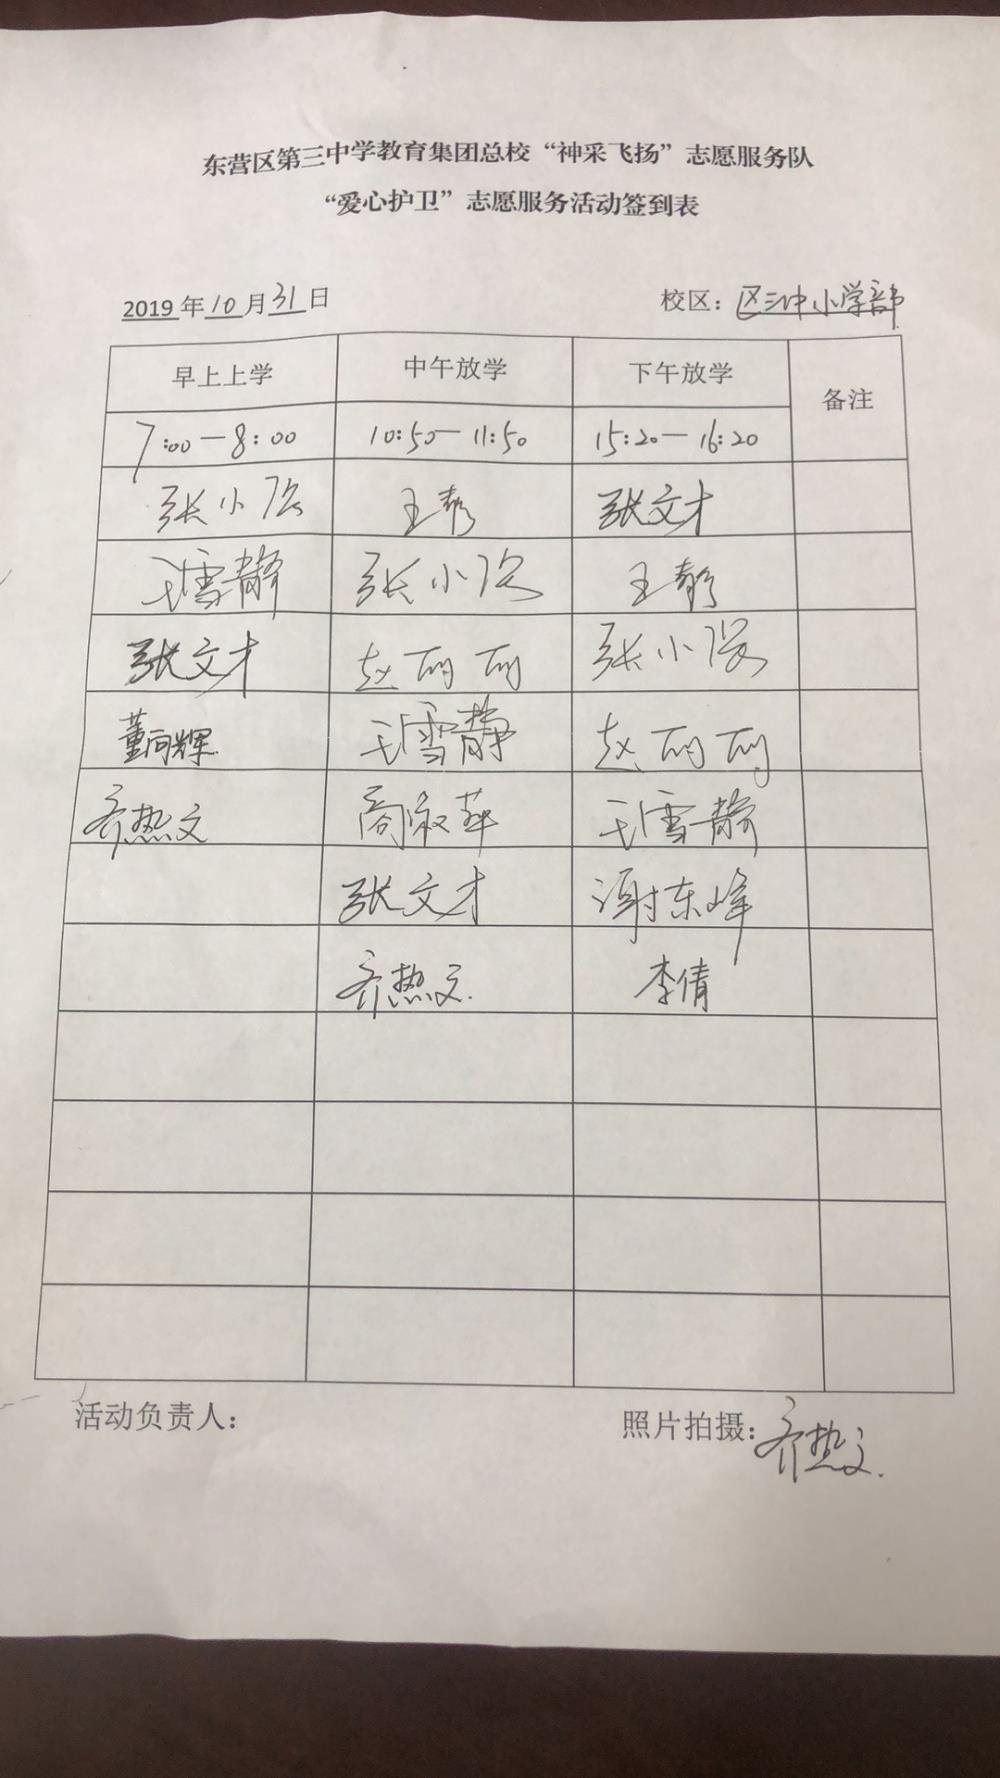 东营区第三中学教育集团总校“神采飞扬”志愿服务队
“爱心护卫”志愿服务活动签到表
2019年10月31日 校区：区三中小学部
早上上学 中午放学 下午放学 备注
7:00—8:00 10:50—11:50 15:20—16:20
张小 王彰 张文才
王雪静 张小 王彰
张文才 赵丽丽 张小
董向辉 王雪静 赵丽丽
齐热文 商淑萍 王雪静
张文才 谢东峰
齐热文 李倩
活动负责人： 照片拍摄：齐热文